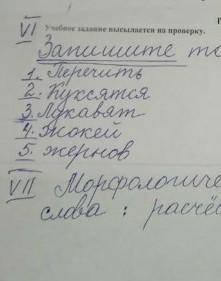 VI Учебное задание высылается на проверку.
Запишите
1. Перечить
2. Куксятся
3. Лукавят
4. Жокей
5. жернов
VII Морфологиче
слова: расчёс